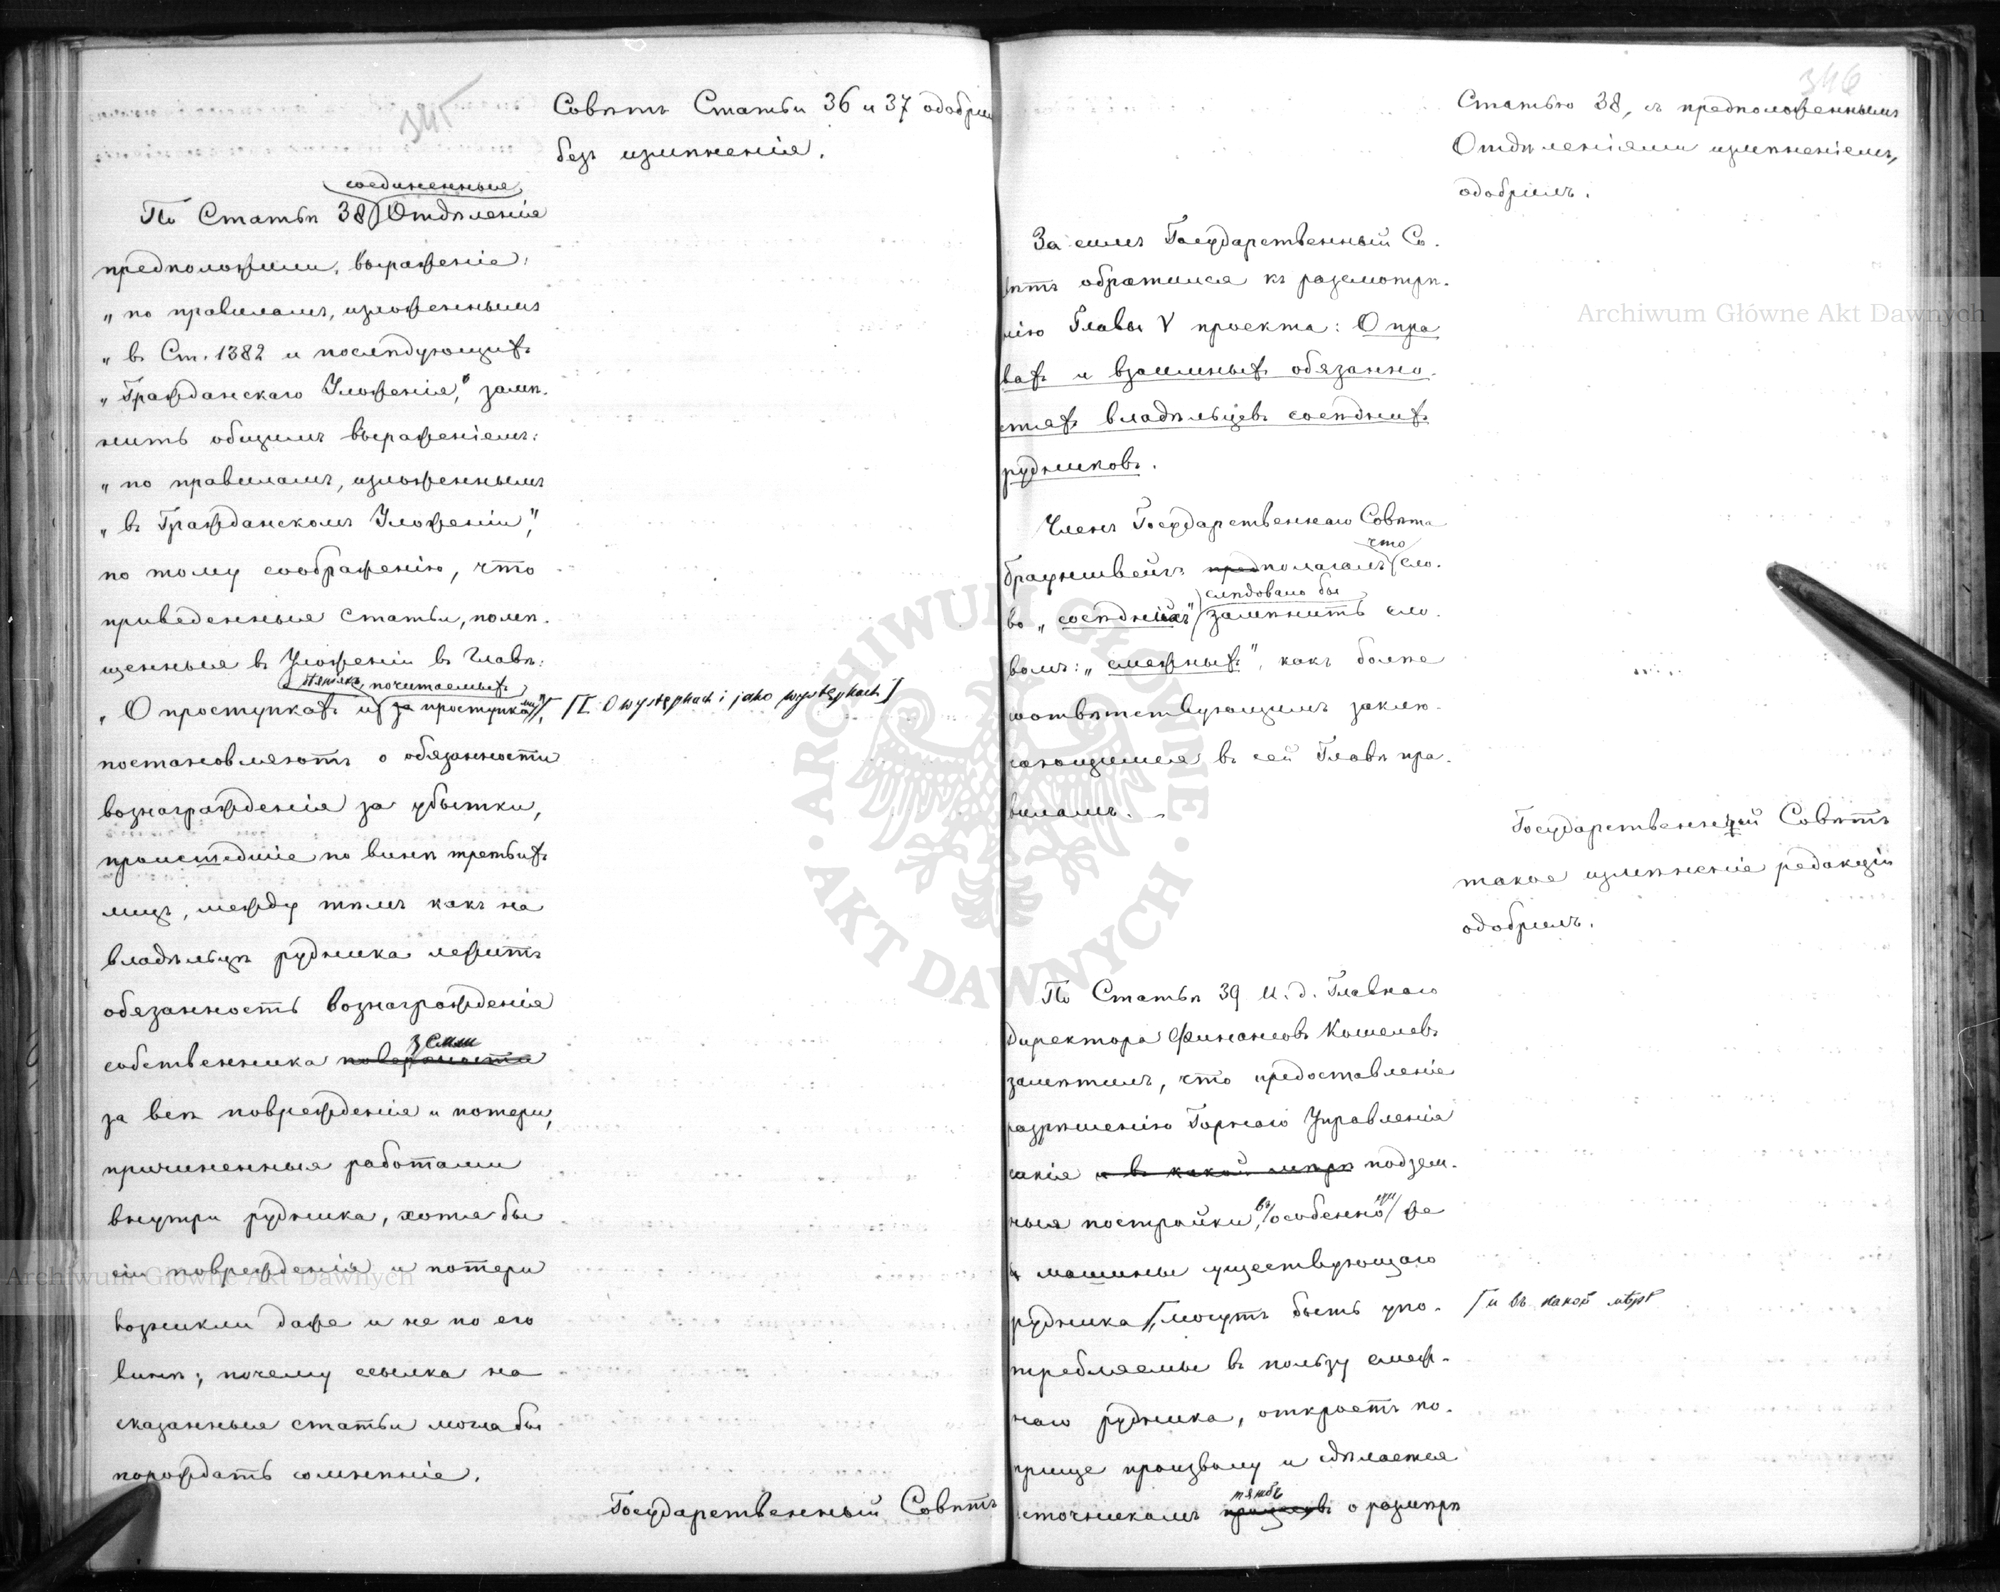 345
Совѣтъ Статьи 36 и 37 одобрил
безъ измѣненія.
соединенныя
По Статьѣ 38 Отдѣленія
предположили, выраженіе:
„по правиламъ, изложеннымъ
„въ Ст. 1382 и послѣдующихъ
„Гражданскаго Уложенія," замѣ-
нить общимъ выраженіемъ:
„по правиламъ, изложеннымъ
„въ Гражданскомъ Уложеніи",
по тому соображенію, что
приведенныя статьи, помѣ-
щенныя въ Уложеніи въ Главѣ:
почитаемыхъ
„О проступкахъ и за проступка
[I O występkach i jako występkach]
постановляютъ о обязанности
вознагражденія за убытки,
происшедшіе по винѣ третьихъ
лицъ, между тѣмъ какъ на
владѣльцѣ рудника лежитъ
обязанность вознагражденія
земли
собственника поверхности
за всѣ поврежденія и потери,
причиненныя работами
внутри рудника, хотя бы
сіи поврежденія и потери
возникли даже и не по его
винѣ; почему ссылка на
сказанныя статьи могла бы
порождать сомнѣніе.
Государственный Совѣтъ
346
Статью 38, съ предположеннымъ
Отдѣленіями измѣненіемъ,
одобрилъ.
За симъ Государственный Со-
вѣтъ обратился къ разсмотрѣ-
нію Главы V проекта: О пра
вахъ и взаимныхъ обязанно-
стяхъ владѣльцевъ сосѣднихъ
рудниковъ.
Членъ Государственнаго Совѣта
что
Брауншвейгъ предполагалъ сло-
слѣдовало бы
во „сосѣднихъ" замѣнить сло-
вомъ: „смежныхъ", какъ болѣе
соотвѣтствующимъ заклю-
чающимся въ сей Главѣ пра-
виламъ. –
Государственный Совѣтъ
такое измѣненіе редакціи
одобрилъ.
По Статьѣ 39 И. д. Главнаго
Директора Финансовъ Кошелевъ
замѣтилъ, что предоставленіе
разрѣшенію Горнаго Управленія
и въ какой мѣрѣ подзем-
ныя постройки, въ особенности же
и машины существующаго
рудника, могутъ быть упо-
и въ какой мѣрѣ
требляемы въ пользу смеж-
наго рудника, откроетъ по-
прище произволу и сдѣлается
тяжбъ
источникомъ процессовъ о размѣрѣ
Archiwum Główne Akt Dawnych
Archiwum Główne Akt Dawnych
ARCHIWUM GŁÓWNE · AKT DAWNYCH ·